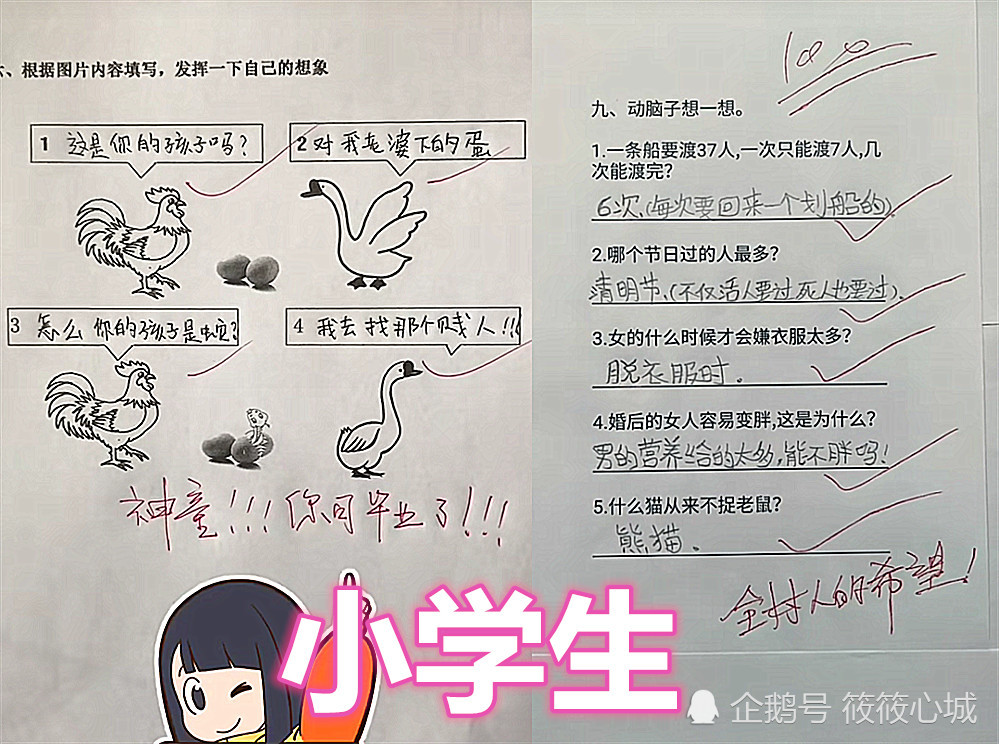 六、根据图片内容填写，发挥一下自己的想象
1 这是你的孩子吗?
2 对我老婆下的蛋
3 怎么你的孩子是蛇?
4 我去找那个贱人!!!
神童!!!你可毕业了!!!
100
九、动脑子想一想。
1.一条船要渡37人,一次只能渡7人,几
次能渡完?
6次,(每次要回来一个划船的)
2.哪个节日过的人最多?
清明节,(不仅活人要过死人也要过).
3.女的什么时候才会嫌衣服太多?
脱衣服时.
4.婚后的女人容易变胖,这是为什么?
男的营养给的太多,能不胖吗!
5.什么猫从来不捉老鼠?
熊猫.
全村人的希望!
小学生
企鹅号 筱筱心城